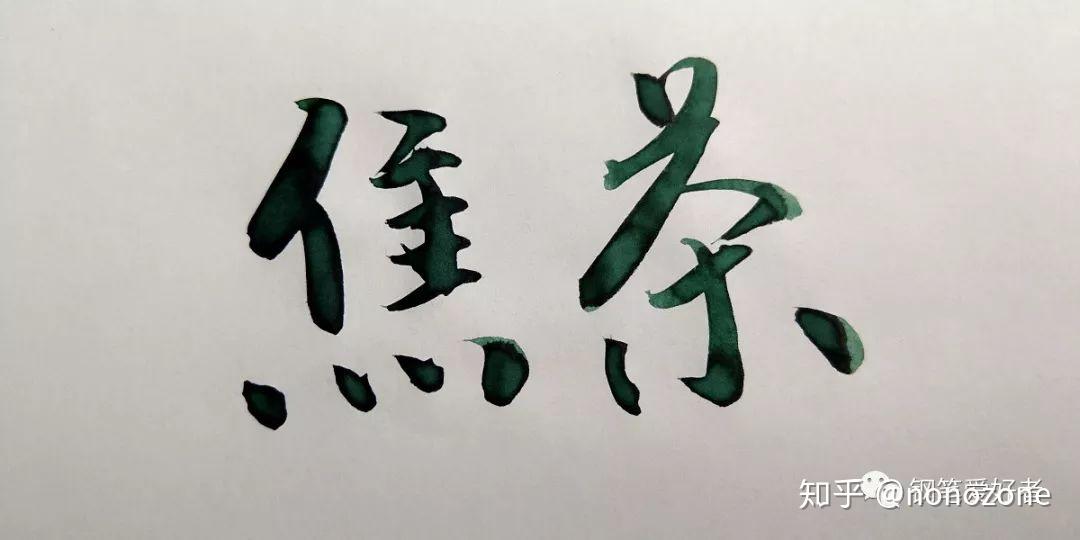 焦茶
钢笔爱好者
知乎 @nonozone